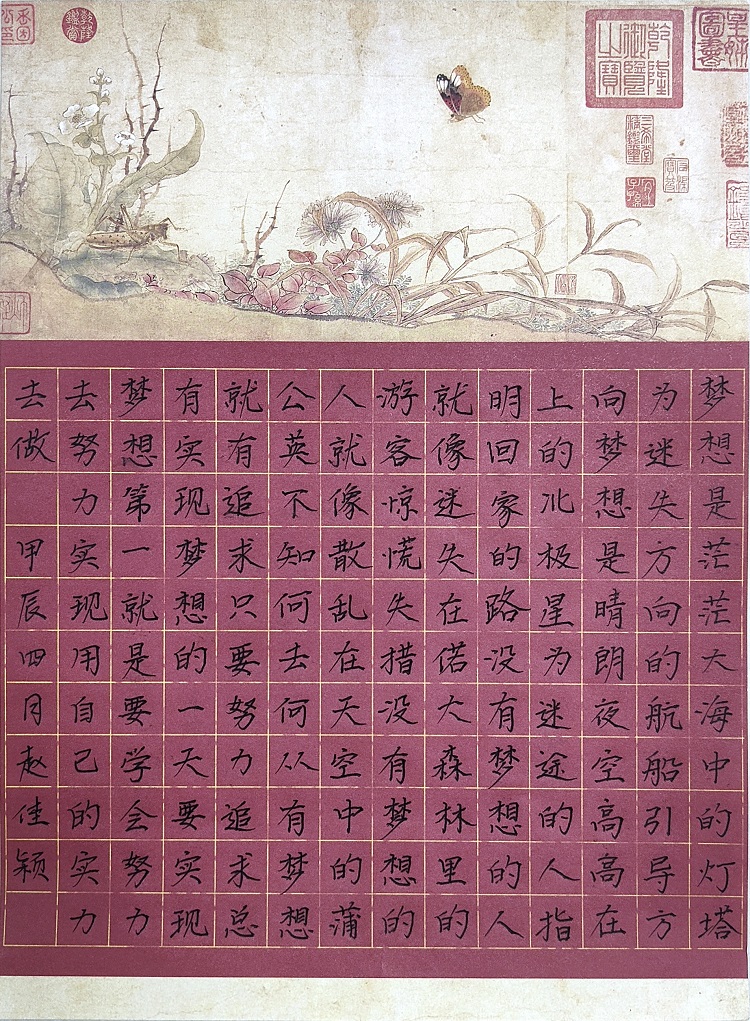 皇姊图书
乾隆御覽之寶
三希堂精鑑璽
宜子孫
乾隆鑑賞
梦想是茫茫大海中的灯塔
为迷失方向的航船引导方
向梦想是晴朗夜空高高在
上的北极星为迷途的人指
明回家的路没有梦想的人
就像迷失在偌大森林里的
游客惊慌失措没有梦想的
人就像散乱在天空中的蒲
公英不知何去何从有梦想
就有追求只要努力追求总
有实现梦想的一天要实现
梦想第一就是要学会努力
去努力实现用自己的实力
去做 甲辰四月赵佳颖